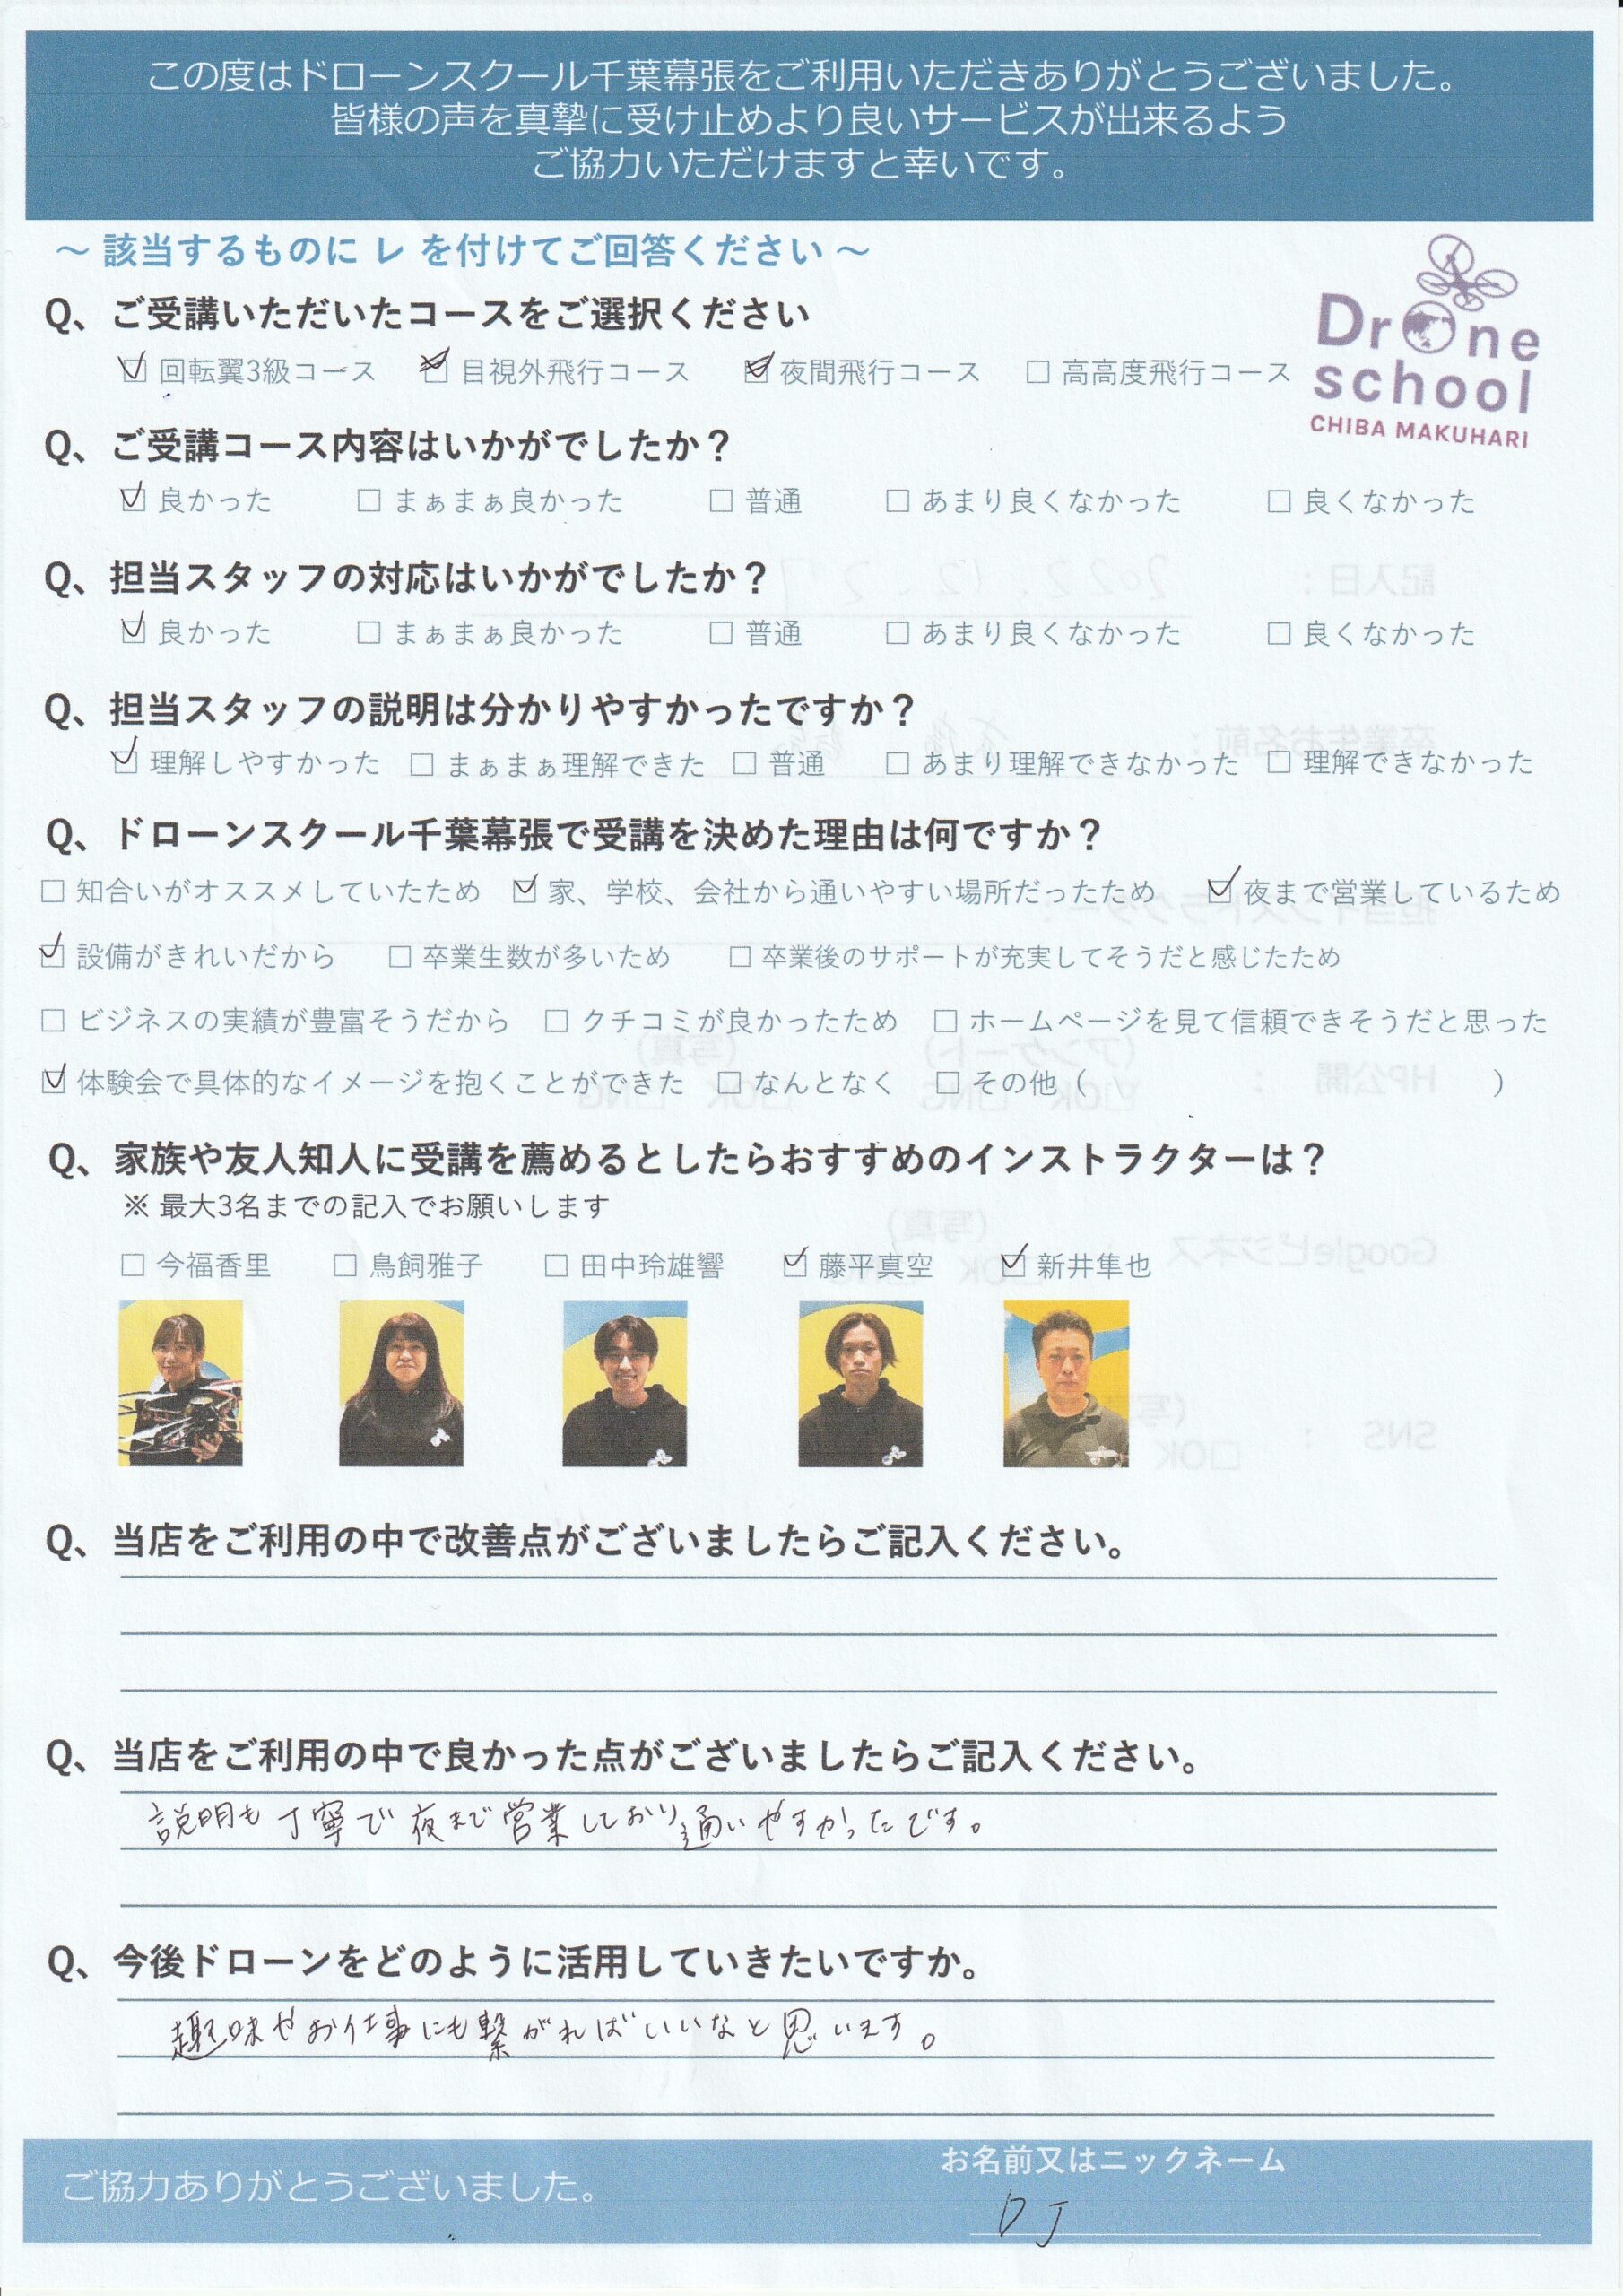 この度はドローンスクール千葉幕張をご利用いただきありがとうございました。
皆様の声を真摯に受け止めより良いサービスが出来るよう
ご協力いただけますと幸いです。
～ 該当するものに レ を付けてご回答ください ～
Drone
school
CHIBA MAKUHARI
Q、ご受講いただいたコースをご選択ください
☑ 回転翼3級コース ☑ 目視外飛行コース ☑ 夜間飛行コース □ 高高度飛行コース
Q、ご受講コース内容はいかがでしたか？
☑ 良かった □ まぁまぁ良かった □ 普通 □ あまり良くなかった □ 良くなかった
Q、担当スタッフの対応はいかがでしたか？
☑ 良かった □ まぁまぁ良かった □ 普通 □ あまり良くなかった □ 良くなかった
Q、担当スタッフの説明は分かりやすかったですか？
☑ 理解しやすかった □ まぁまぁ理解できた □ 普通 □ あまり理解できなかった □ 理解できなかった
Q、ドローンスクール千葉幕張で受講を決めた理由は何ですか？
□ 知合いがオススメしていたため ☑ 家、学校、会社から通いやすい場所だったため ☑ 夜まで営業しているため
☑ 設備がきれいだから □ 卒業生数が多いため □ 卒業後のサポートが充実してそうだと感じたため
□ ビジネスの実績が豊富そうだから □ クチコミが良かったため □ ホームページを見て信頼できそうだと思った
☑ 体験会で具体的なイメージを抱くことができた □ なんとなく □ その他（ ）
Q、家族や友人知人に受講を薦めるとしたらおすすめのインストラクターは？
※ 最大3名までの記入でお願いします
□ 今福香里 □ 鳥飼雅子 □ 田中玲雄響 ☑ 藤平真空 ☑ 新井隼也
Q、当店をご利用の中で改善点がございましたらご記入ください。
Q、当店をご利用の中で良かった点がございましたらご記入ください。
説明も丁寧で夜まで営業しており通いやすかったです。
Q、今後ドローンをどのように活用していきたいですか。
趣味やお仕事にも繋がればいいなと思います。
ご協力ありがとうございました。
お名前又はニックネーム
DJ